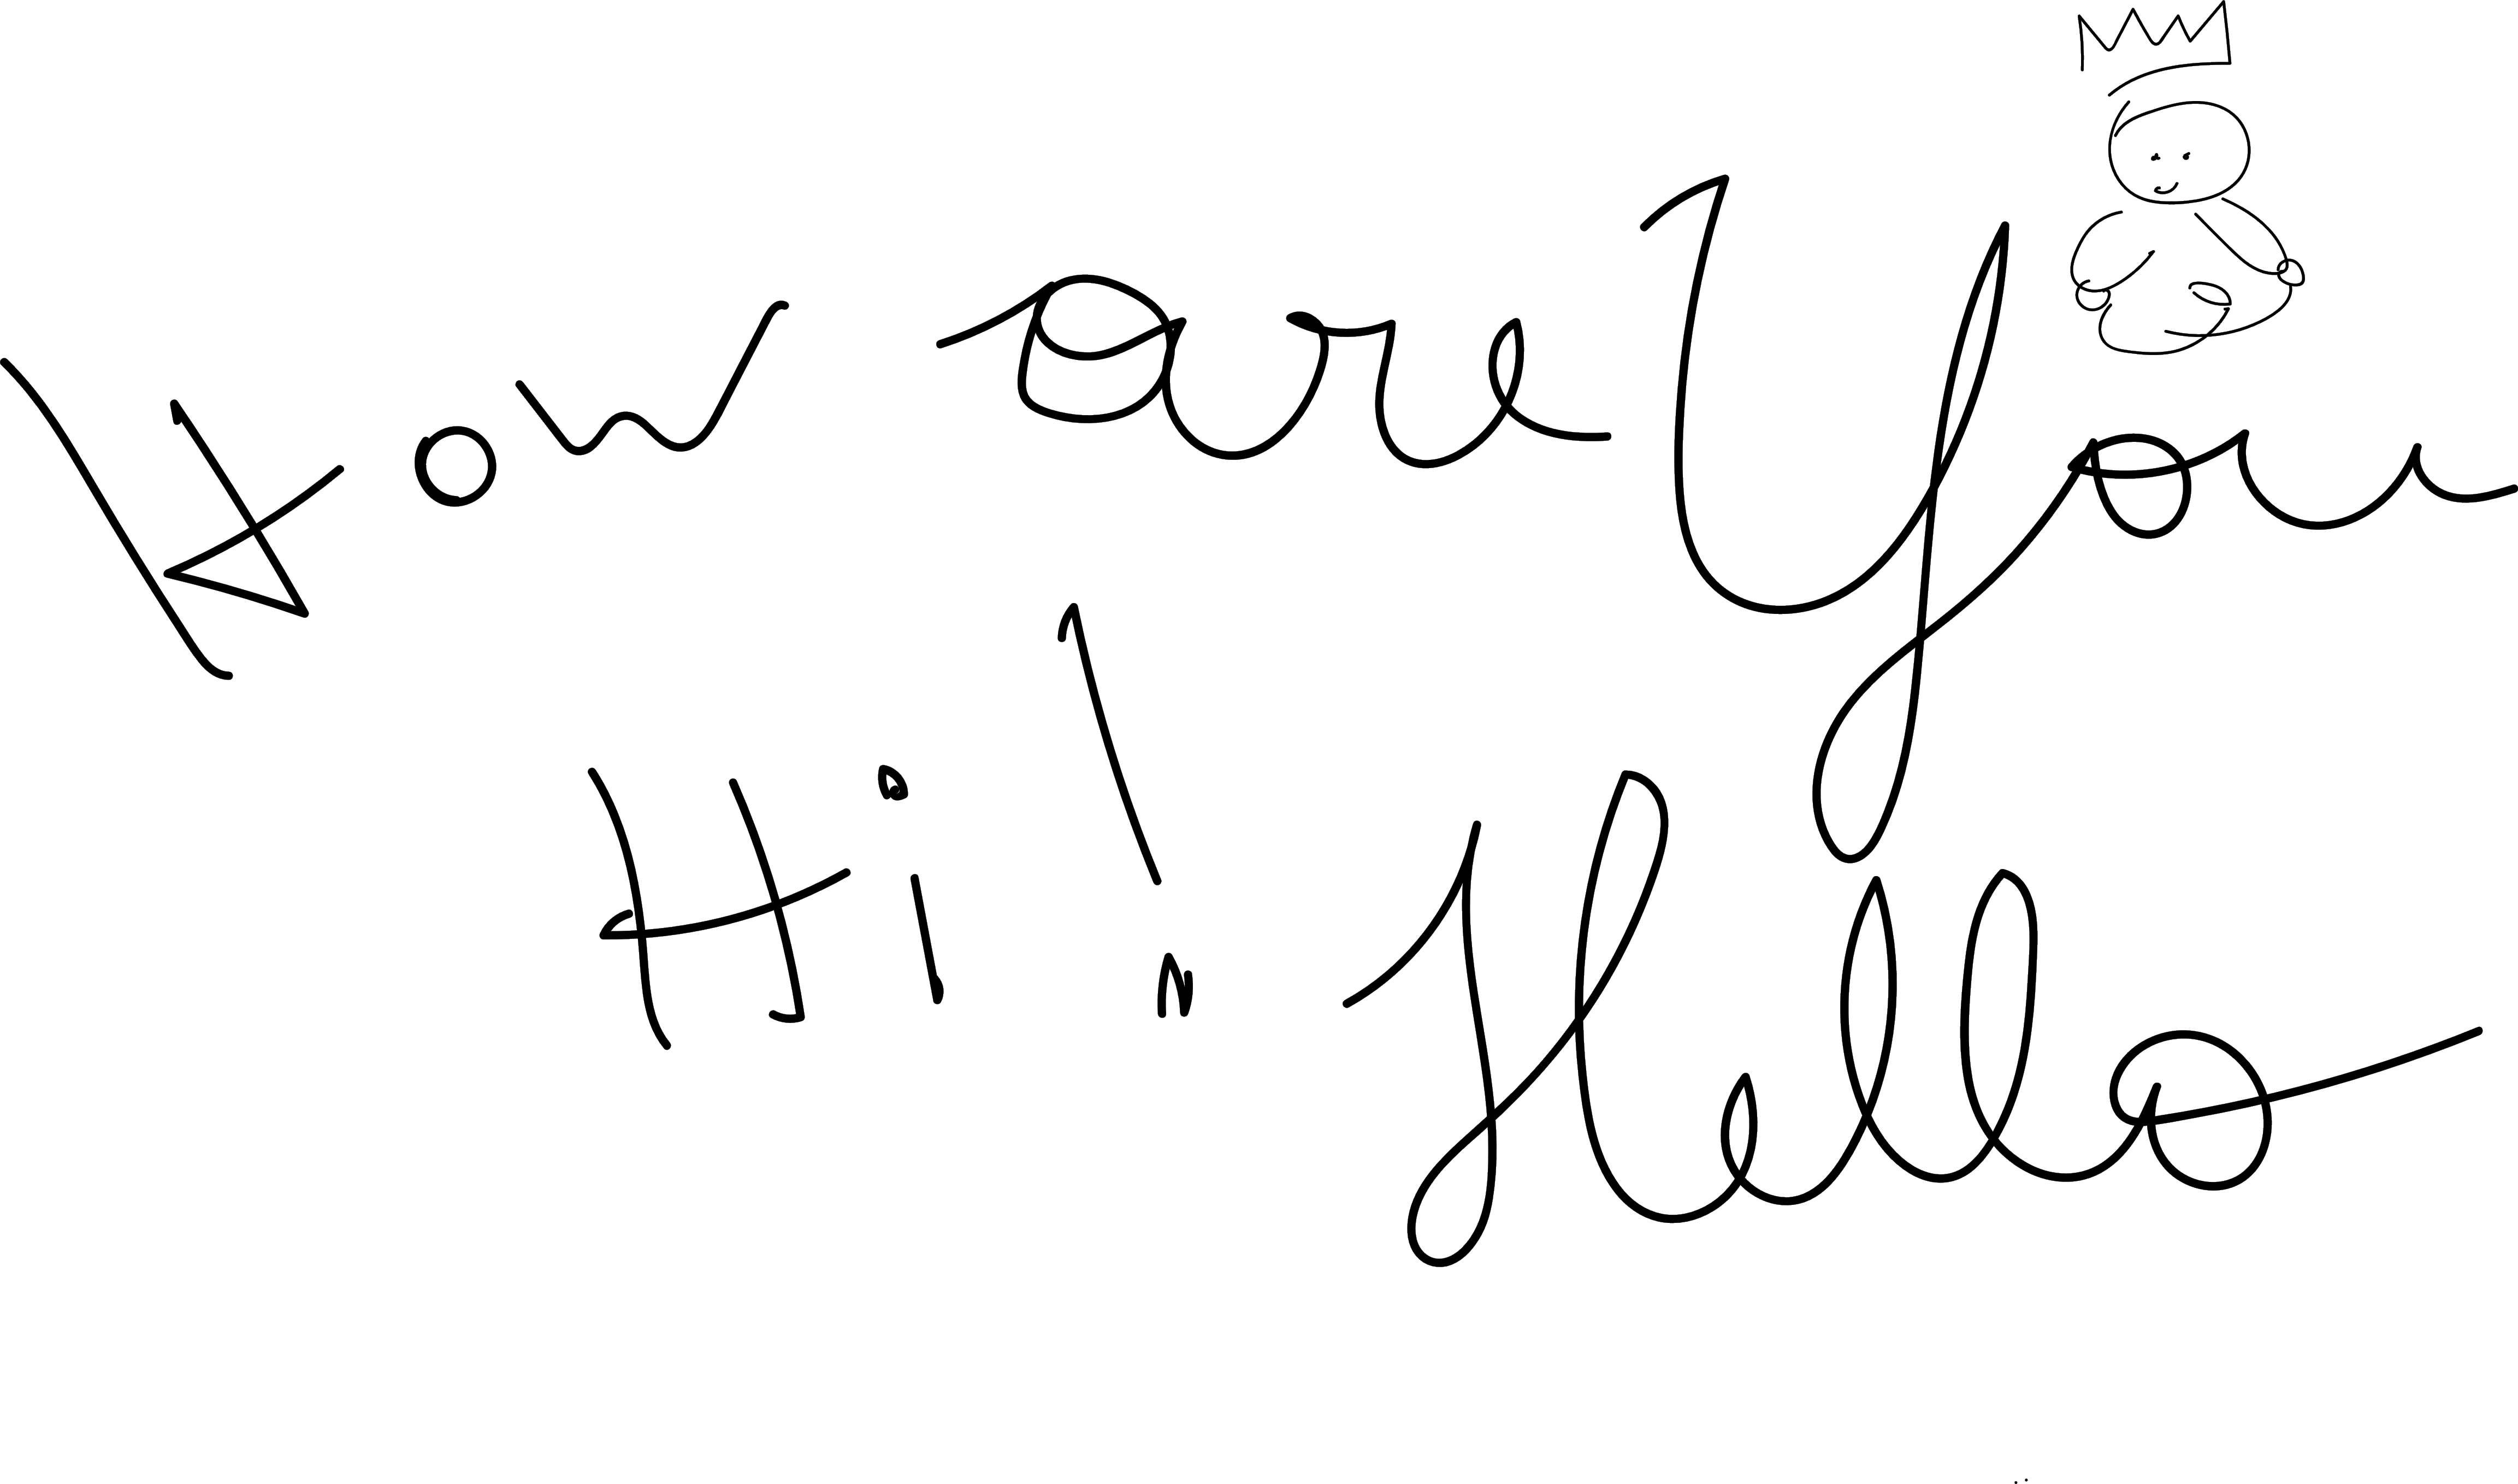 How are You
Hi! Hello